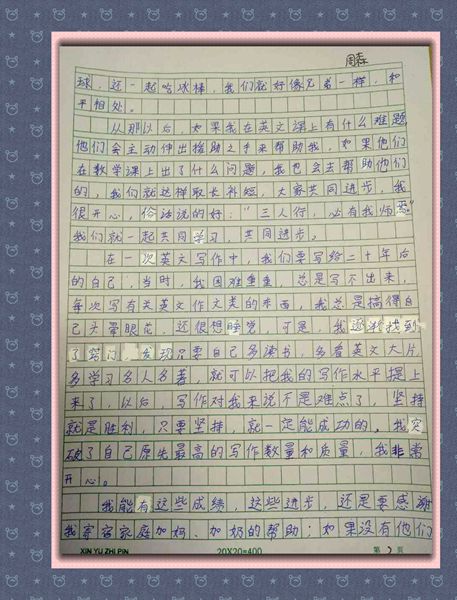 周森
球,还一起吃冰棒,我们就好像兄弟一样,和
平相处。
从那以后,如果我在英文课上有什么难题
他们会主动伸出援助之手来帮助我,如果他们
在数学课上出了什么问题,我也会去帮助他们
的,我们就这样取长补短,大家共同进步,我
很开心,俗话说的好:“三人行,必有我师焉”
我们就一起共同学习,共同进步。
在一次英文写作中,我们要写给二十年后
的自己,当时,我困难重重,总是写不出来,
每次写有关英文作文类的东西,我总是搞得自
己头晕眼花,还很想睡觉,可是,我逐渐找到
了窍门,发现只要自己多读书,多看英文大片
多学习名人名著,就可以把我的写作水平提上
来了,以后,写作对我来说不是难点了,坚持
就是胜利,只要坚持,就一定能成功的。我突
破了自己原先最高的写作数量和质量,我非常
开心。
我能有这些成绩,这些进步,还是要感谢
我寄宿家庭加妈、加奶的帮助;如果没有他们
XIN YU ZHI PIN 20X20=400 第 2 页